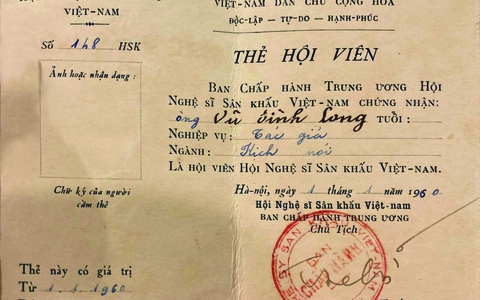 VIỆT-NAM
Số 148 HSK
Ảnh hoặc nhận dạng :
Chữ ký của người
cầm thẻ
Thẻ này có giá trị
Từ 1.1.1960
VIỆT-NAM DÂN CHỦ CỘNG HÒA
ĐỘC-LẬP — TỰ-DO — HẠNH-PHÚC
THẺ HỘI VIÊN
BAN CHẤP HÀNH TRUNG ƯƠNG HỘI
NGHỆ SĨ SÂN KHẤU VIỆT-NAM CHỨNG NHẬN:
ông Vũ Đình Long TUỔI :
NGHIỆP VỤ : Tác giả
NGÀNH : Kịch nói
LÀ HỘI VIÊN HỘI NGHỆ SĨ SÂN KHẤU VIỆT-NAM.
Hà-nội, ngày 1 tháng 1 năm 1960
Hội Nghệ sĩ Sân khấu Việt-nam
BAN CHẤP HÀNH TRUNG ƯƠNG
Chủ Tịch